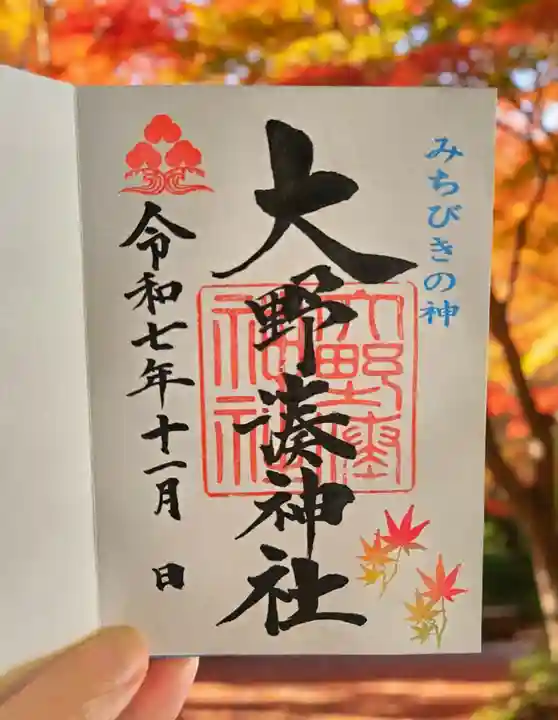 みちびきの神
大野湊神社
令和七年十一月 日
大野湊
神社